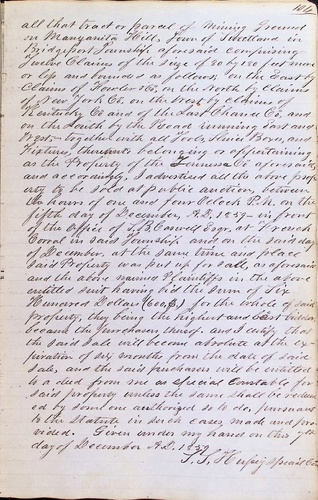 all that tract or parcel of Mining Ground
on Manzanita Hill, Town of Sweetland in
Bridgeport Township aforesaid comprising
Twelve Claims of the size of 80 by 180 feet more
or less and bounded as follows, on the East by
Claims of Fowler & Co, on the North by Claims
of New York Co, on the West by Claims of
Kentucky Co and of the Last Chance Co, and
on the South by the Road running East and
West—together with all Tools, Sluice Boxes, and
Fixtures, thereunto belonging or appertaining
as the Property of the Tennessee Co aforesaid,
and accordingly, I advertised all the above prop-
erty to be sold at public auction, between
the hours of one and four O'clock P.M. on the
fifth day of December, A.D. 1859 in front
of the Office of Caswell Esqr, at French
Corral in said Township and on the said day
of December, at the same time and place
said Property was put up for sale, as aforesaid
and the above named Plaintiffs in the above
entitled suit having bid the sum of Six
Hundred Dollars (600,$) for the whole of said
property, they being the highest and best bidders
became the purchasers thereof. And I certify that
the said Sale will become absolute at the ex-
piration of six months from the date of said
sale, and the said purchasers will be entitled
to a deed from me as special Constable for
said property unless the same shall be redeem-
ed by some one authorized so to do, pursuant
to the Statute in such cases made and pro-
vided. Given under my hand on this 7th
day of December A.D. 1859
special Con